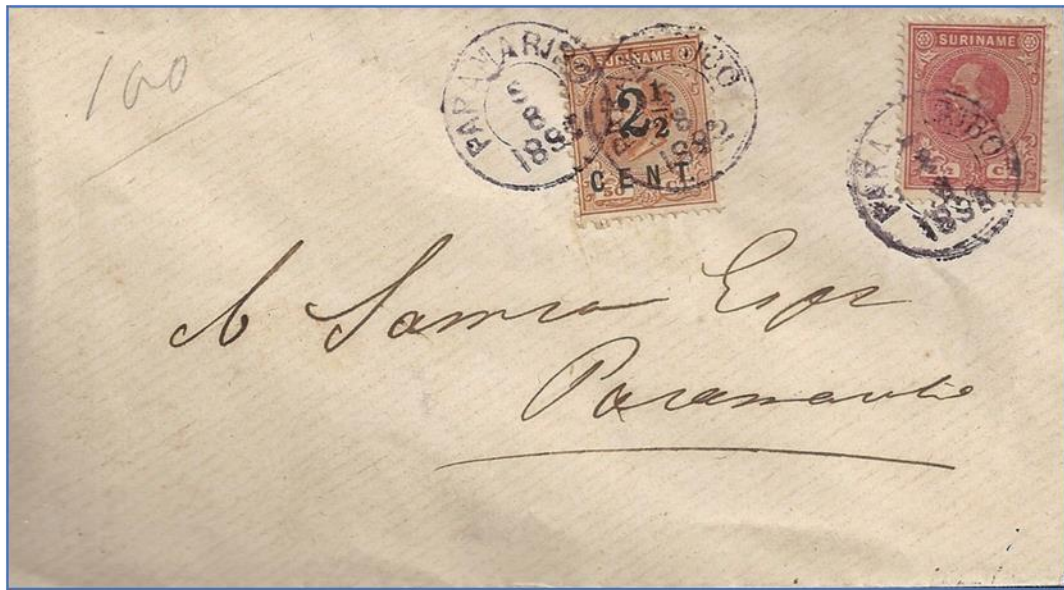 100
PARAMARIBO
8
189
SURINAME
2 1/2
CENT.
50
SURINAME
2½ C
PARA IBO
189
Samson Esqr
Paramaribo